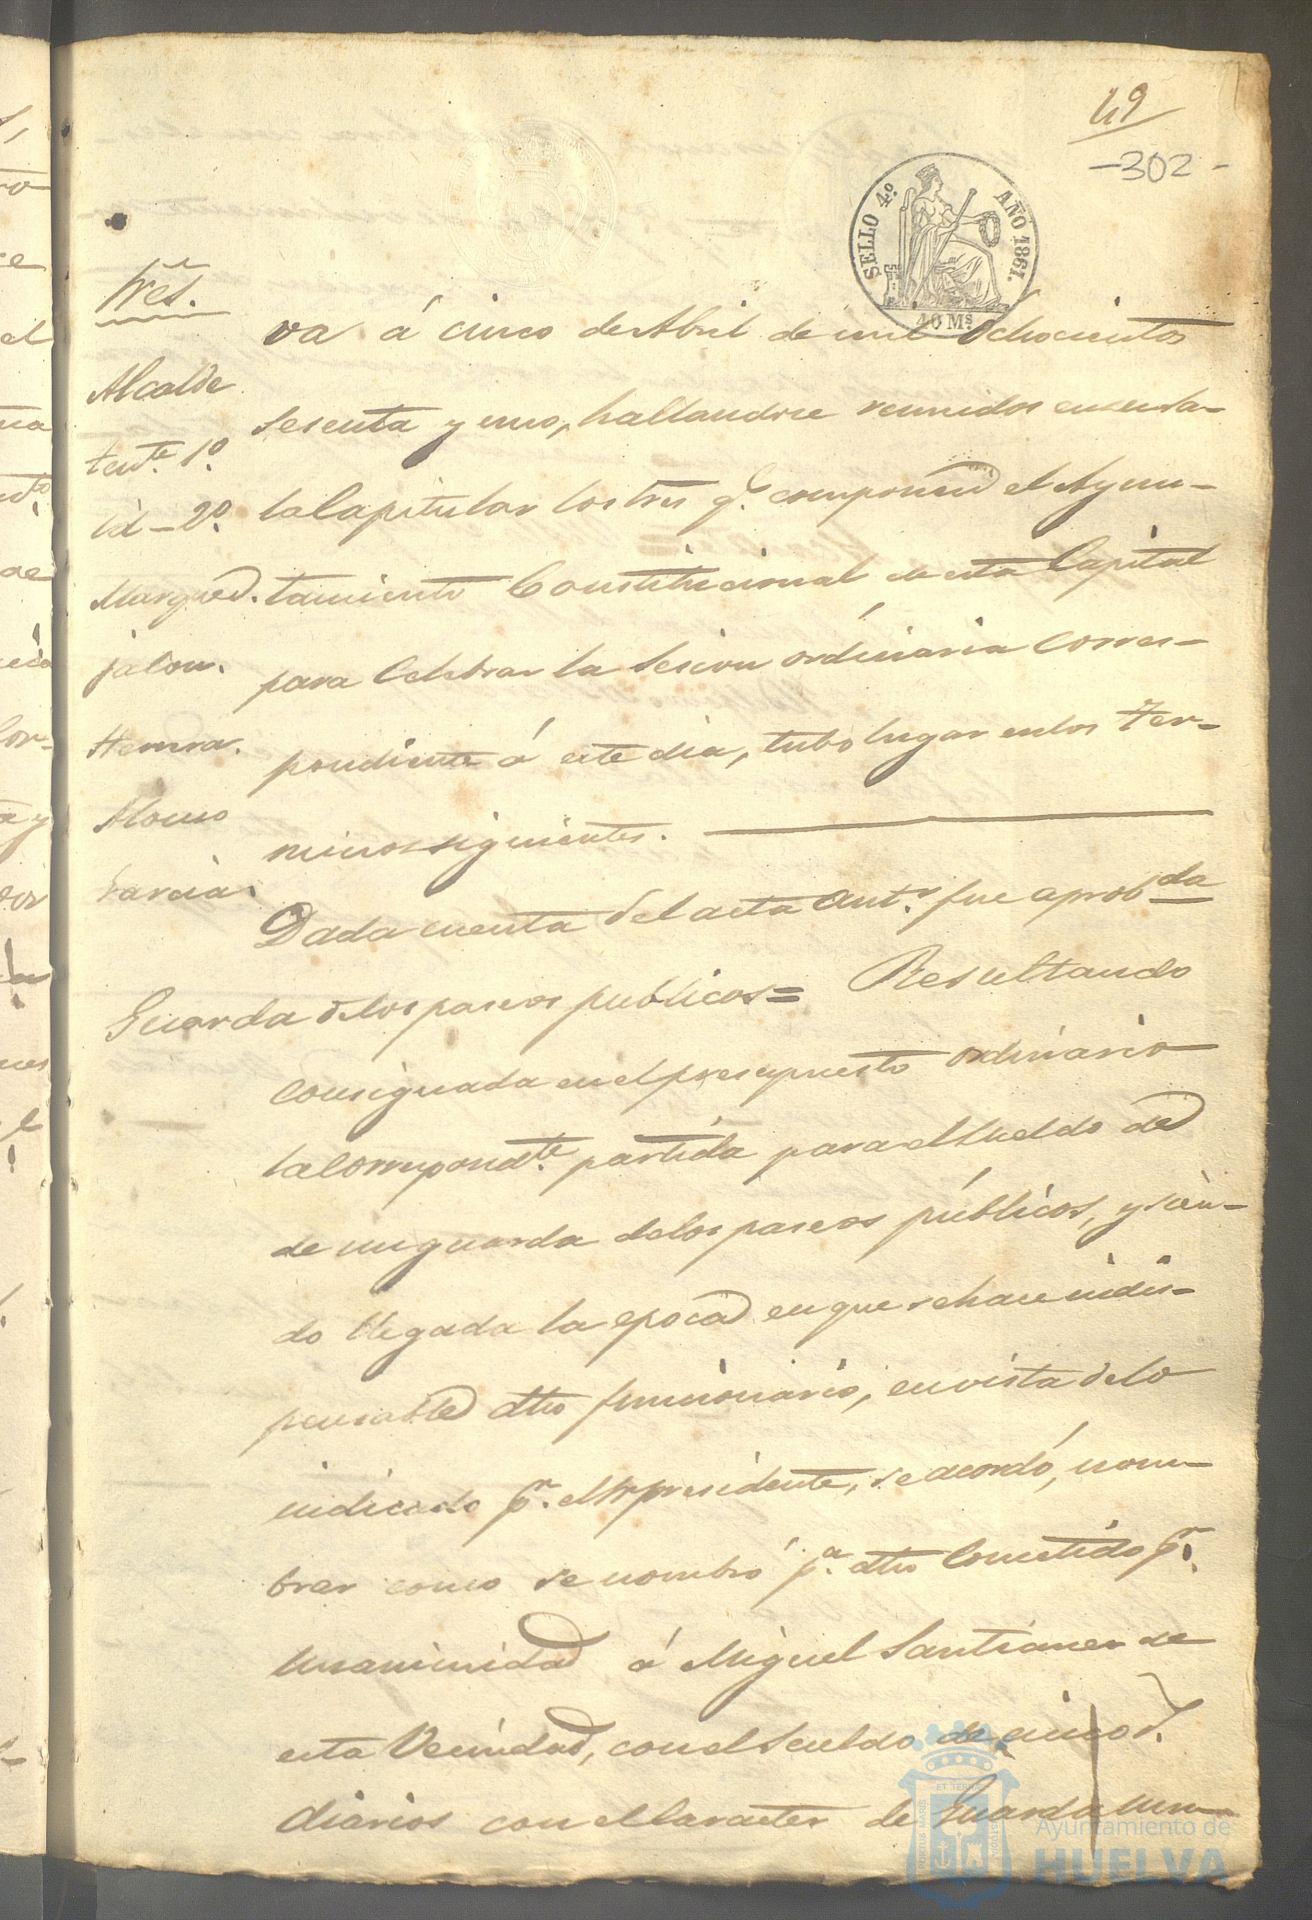 49
-302-
SELLO 4º. AÑO 1861.
40 Ms
Sres.
Alcalde
tente. 1º.
id - 2º.
Marqued.
jalon.
Herrera.
Alonso
Garcia.
va á cinco de Abril de mil Ochocientos
Sesenta y uno, hallandose reunidos en su Sa-
la Capitular los Sres q.e componen el Ayun-
tamiento Constitucional de esta Capital
para Celebrar la Sesion ordinaria Corres-
pondiente á este dia, tubo lugar en los Ter-
minos siguientes.
Dada cuenta del acta antr. fue aprobda
Guarda de los paseos publicos = Resultando
consignada en el presupuesto ordinario
la Correspondte. partida para el Sueldo de
de un guarda de los paseos públicos, y sien-
do llegada la epoca en que se hace indis-
pensable dho funcionario, en vista de lo
indicado pr. el Sr presidente, se acordó, nom-
brar como se nombró pa. dho Cometido pr.
Unanimidad á Miguel Santianes de
esta Vecindad, con el Sueldo de cinco r.
diarios con el Caracter de Guarda mu-
PORTUS MARIS ET TERRAE CUSTODIA
Ayuntamiento de
HUELVA